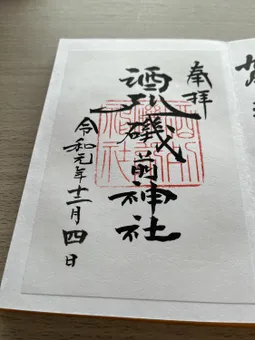 奉拝
酒列磯前神社
令和元年十二月四日